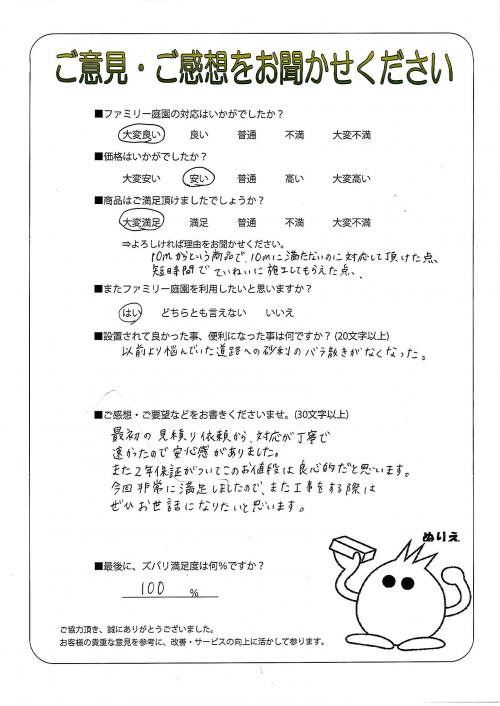 ご意見・ご感想をお聞かせください
■ファミリー庭園の対応はいかがでしたか？
大変良い 良い 普通 不満 大変不満
■価格はいかがでしたか？
大変安い 安い 普通 高い 大変高い
■商品はご満足頂けましたでしょうか？
大変満足 満足 普通 不満 大変不満
⇒よろしければ理由をお聞かせください。
10mからという商品で、10mに満たないのに対応して頂けた点、
短時間でていねいに施工してもらえた点、
■またファミリー庭園を利用したいと思いますか？
はい どちらとも言えない いいえ
■設置されて良かった事、便利になった事は何ですか？(20文字以上)
以前より悩んでいた道路への砂利のバラ散きがなくなった。
■ご感想・ご要望などをお書きくださいませ。(30文字以上)
最初の見積り依頼から、対応が丁寧で
速かったので安心感がありました。
また2年保証がついてこのお値段は良心的だと思います。
今回非常に満足しましたので、また工事をする際は
ぜひお世話になりたいと思います。
ぬりえ
■最後に、ズバリ満足度は何％ですか？
100 %
ご協力頂き、誠にありがとうございました。
お客様の貴重な意見を参考に、改善・サービスの向上に活かして参ります。